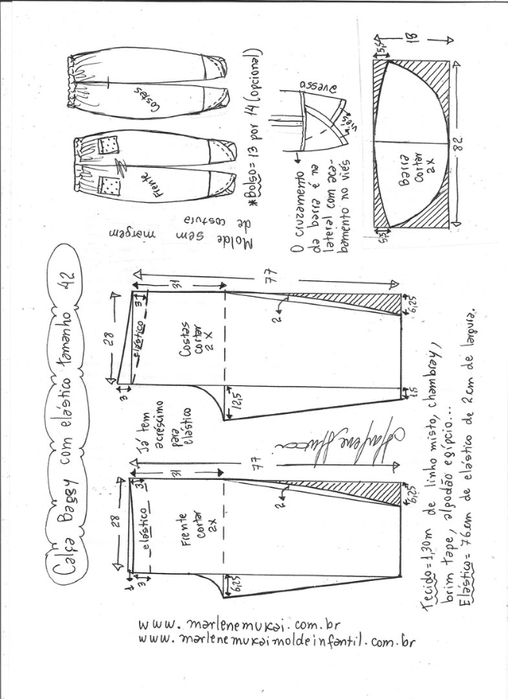 Calça Baggy com elástico tamanho 42
Molde sem margem
de costura
Costas
Frente
*Bolso = 13 por 14 (opcional)
avesso
viés
O cruzamento
da barra é na
lateral com aca-
bamento no viés
5,5
18
Barra
cortar
2x
82
5,5
77
31
3
28
elástico
Costas
cortar
2x
2
6,25
3
12,5
1,5
Já tem
acréscimo
para
elástico
77
31
3
28
elástico
Frente
cortar
2x
2
6,25
1
3
6,25
Tecido = 1,30m de linho misto, chambray,
brim tape, algodão egípcio...
Elástico = 76 cm de elástico de 2 cm de largura.
www.marlenemukai.com.br
www.marlenemukaimoldeinfantil.com.br